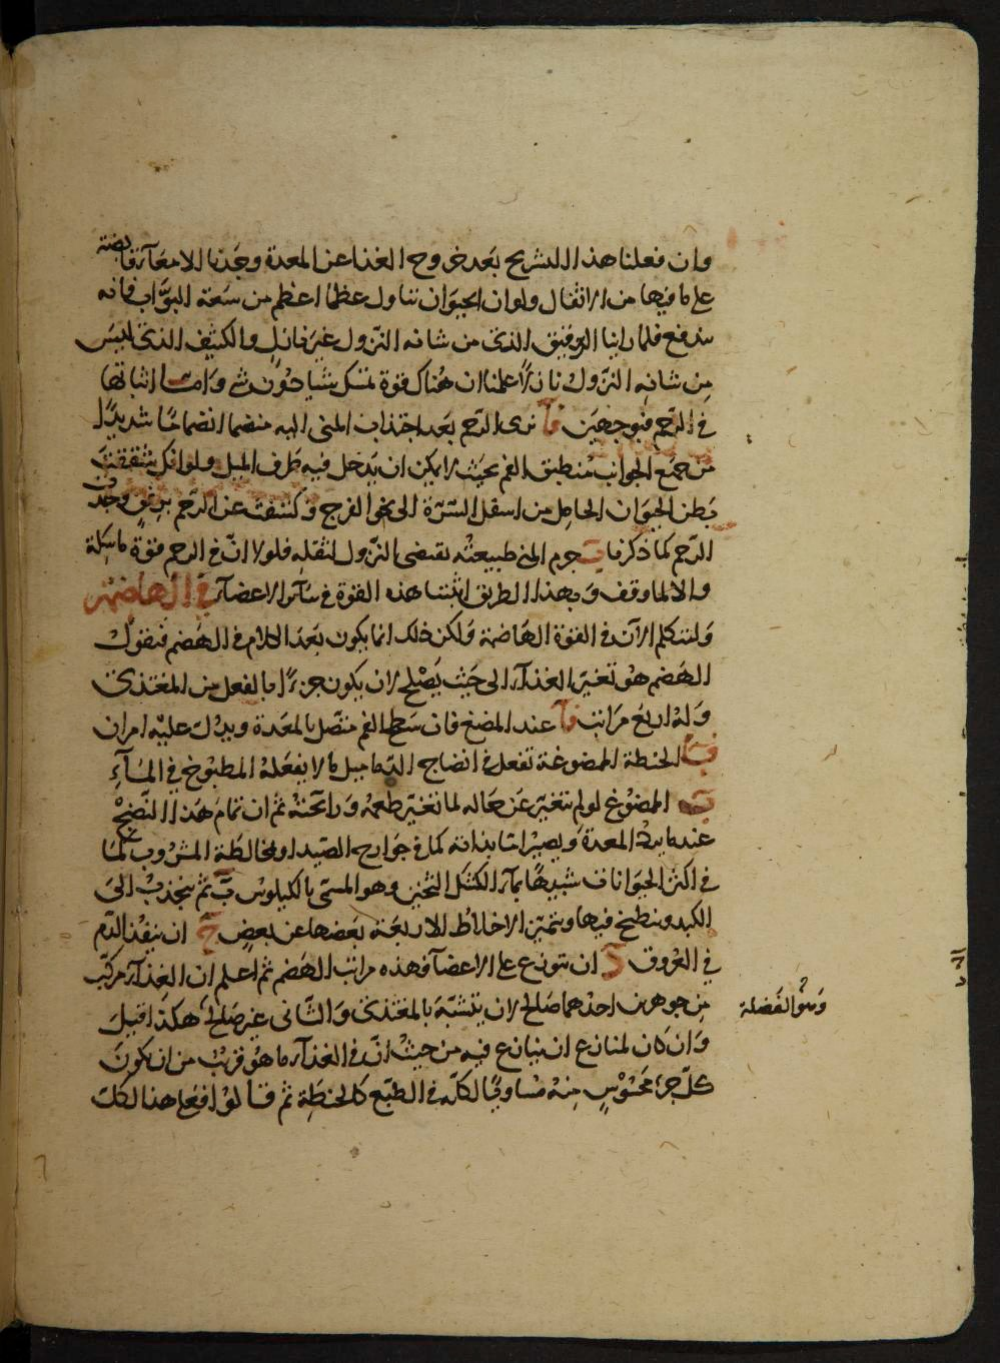 وان فعلنا هذا التشريح بعد خروج الغذا عن المعدة وجدنا الامعآ قابضة
على ما فيها من الاثقال ولو ان الحيوان تناول عظما اعظم من سعة البوّاب فانه
يندفع فلما راينا الرقيق الذى من شانه النزول غير نازل والكثيف الذى ليس
من شانه النزول نازلاً علمنا ان هناك قوة تمسك شيا دون شى وامـا اثباتها
فى الرحم فبوجهين آ نرى الرحم بعد اجتذاب المنى اليه منضما انضماما شديدًا
من جميع الجوانب منطبق الفم بحيث لا يمكن ان يدخل فيه طرف الميل ولو انك شققت
بطن الحيوان الحامل من اسفل السّرّة الى نحو الفرج وكشفت عن الرحم برفقٍ وجدت
الرّحم كما ذكرنا ب جرم المنى طبيعته يقتضى النزول لثقله فلولا انّ فى الرحم قوة ماسكة
والا لما وقف وبهذا الطريق اثبتنا هذه القوة فى سآئر الاعضآء فى الهاضمة
ولنتكلم الآن فى القوة الهاضمة ولكن ذلك انما يكون بعد الكلام فى الهضم فنقول
الهضم هو تغير الغذآء الى حيث يصلح لان يكون جزءًا بالفعل من المغتذى
وله اربع مراتب آ عند المضغ فان سطح الفم متصل بالمعدة ويدل عليه امران
آ الحنطة الممضوغة تفعل فى انضاج الدماميل ما لا يفعله المطبوخ فى المآء
ب الممضوغ لو لم يتغير عن حاله لما تغير طعمه ورائحته ثم ان تمام هذا النضج
عند ما يرد المعدة ويصير اما بذاته كما فى جوارح الصيد او بمخالطة المشروب كما
فى اكثر الحيوانات شبيهًا بمآء الكشك الثخين وهو المسمى بالكيلوس ب ثم ينجذب الى
الكبد وينطبخ فيها ويتميز الاخلاط الاربعة بعضها عن بعض ج ان ينفذ الدم
فى العروق د ان يتوزع على الاعضآ فهذه مراتب الهضم ثم اعلم ان الغذآء مركب
من جوهرين احدهما صالح لان يتشبّه بالمغتذى والثانى غير صالح له هكذا قيل
وان كان لمنازع ان ينازع فيه من حيث انّ فى الغذآء ما هو قريب من ان يكون
كلّ جزء محسوسٍ منه مساويًا لكلّه فى الطبع كالحنطة ثم قالوا فعلى هذا لكل
وهو الفضلة